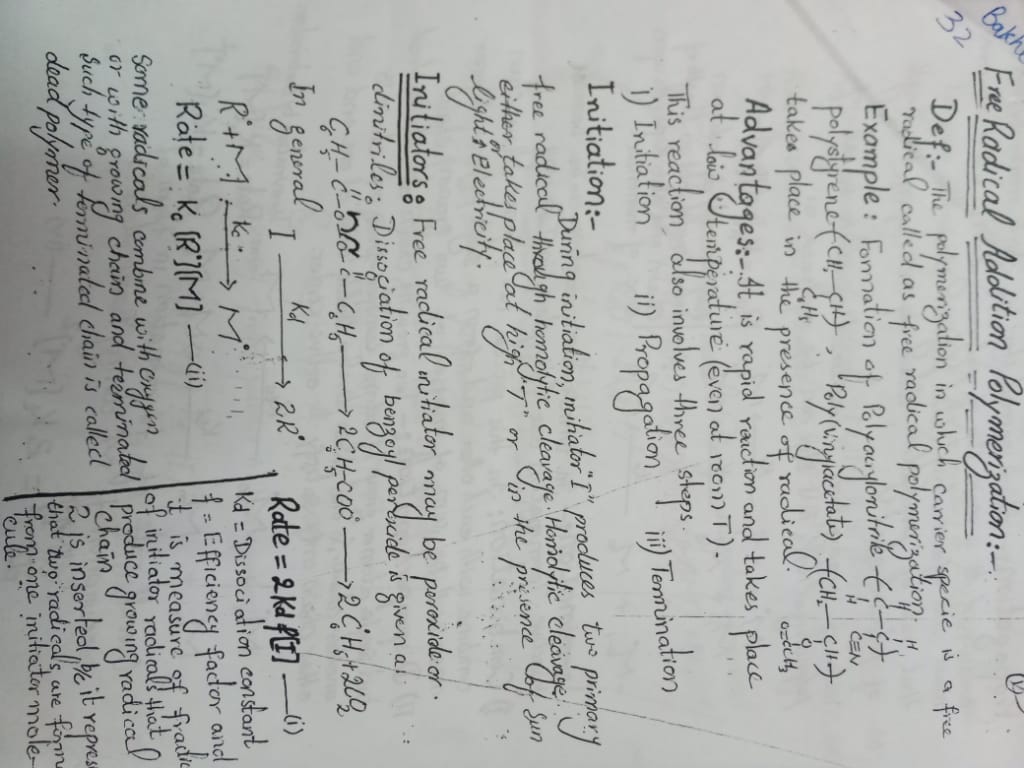 32
Free Radical Addition Polymerization:-
Def:- The polymerization in which carrier specie is a free
radical called as free radical polymerization.
Example: Formation of Polyacrylonitrile
polystyrene -(CH2-CH)-, Poly(vinylacetate) -(CH2-CH)-
C6H5
takes place in the presence of radical
Advantages:- It is rapid reaction and takes place
at low temperature (even at room T).
This reaction also involves three steps.
i) Initiation ii) Propagation iii) Termination
Initiation:-
During initiation, initiator "I" produces two primary
free radical through homolytic cleavage. Homolytic cleavage
either takes place at high "T" or in the presence of sun
light or Electricity.
Initiators: Free radical initiator may be peroxide or
dinitriles: Dissociation of benzoyl peroxide is given as
C6H5-C-O-O-C-C6H5 → 2C6H5-COO° → 2C6H5+2CO2
In general I Kd → 2R° Rate = 2Kd f[I] — (i)
R°+M Kc → M°
Rate = Kc [R°][M] — (ii)
Some radicals combine with oxygen
or with growing chain and terminated
Such type of terminated chain is called
dead polymer.
Kd = Dissociation constant
f = Efficiency factor and
it is measure of
of initiator radicals that
produce growing radical
chain
2 is inserted b/c it
that two radicals are
from one initiator mole-
cule.